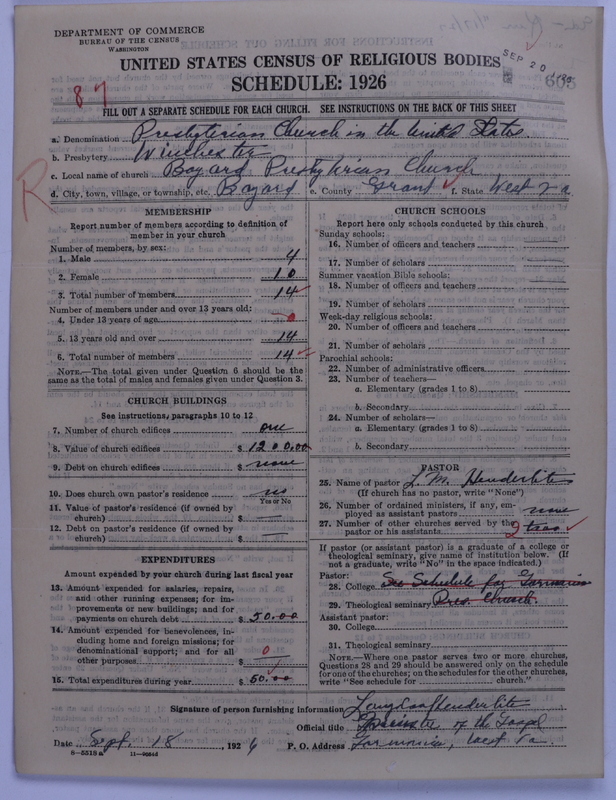 DEPARTMENT OF COMMERCE
BUREAU OF THE CENSUS
WASHINGTON
SEP 20
UNITED STATES CENSUS OF RELIGIOUS BODIES
SCHEDULE: 1926
87
605
FILL OUT A SEPARATE SCHEDULE FOR EACH CHURCH. SEE INSTRUCTIONS ON THE BACK OF THIS SHEET
R
a. Denomination Presbyterian Church in the United States
b. Presbytery Winchester
c. Local name of church Bayard Presbyterian Church
d. City, town, village, or township, etc. Bayard e. County Grant f. State West Va
MEMBERSHIP
Report number of members according to definition of
member in your church
Number of members, by sex:
1. Male 4
2. Female 10
3. Total number of members 14
Number of members under and over 13 years old:
4. Under 13 years of age 0
5. 13 years old and over 14
6. Total number of members 14
NOTE.—The total given under Question 6 should be
same as the total of males and females given under Question 3.
CHURCH BUILDINGS
See instructions, paragraphs 10 to 12
7. Number of church edifices one
8. Value of church edifices $ 1200.00
9. Debt on church edifices $ none
10. Does church own pastor's residence no
Yes or No
11. Value of pastor's residence (if owned by
church) $ —
12. Debt on pastor's residence (if owned by
church) $ —
EXPENDITURES
Amount expended by your church during last fiscal year
13. Amount expended for salaries, repairs,
and other running expenses; for im-
provements or new buildings; and for
payments on church debt $ 50.00
14. Amount expended for benevolences, in-
cluding home and foreign missions; for
denominational support; and for all
other purposes $ 0
15. Total expenditures during year $ 50.00
CHURCH SCHOOLS
Report here only schools conducted by this church
Sunday schools:
16. Number of officers and teachers
17. Number of scholars
Summer vacation Bible schools:
18. Number of officers and teachers
19. Number of scholars
Week-day religious schools:
20. Number of officers and teachers
21. Number of scholars
Parochial schools:
22. Number of administrative officers
23. Number of teachers—
a. Elementary (grades 1 to 8)
b. Secondary
24. Number of scholars—
a. Elementary (grades 1 to 8)
b. Secondary
PASTOR
25. Name of pastor L. M. Henderlite
(If church has no pastor, write "None")
26. Number of ordained ministers, if any, em-
ployed as assistant pastors none
27. Number of other churches served by the
pastor or his assistants 2 two
If pastor (or assistant pastor) is a graduate of a college or
theological seminary, give name of institution below. (If
not a graduate, write "No" in the space indicated.)
Pastor:
28. College See Schedule for Formania
29. Theological seminary Pres. Church.
Assistant pastor:
30. College
31. Theological seminary
NOTE.—Where one pastor serves two or more churches,
Questions 28 and 29 should be answered only on the schedule
for one of the churches; on the schedules for the other churches,
write "See schedule for church."
Signature of person furnishing information Henderlite
Official title Minister of the Gospel
Date Sept. 18 1926 P. O. Address West Va
8—5518a 11—